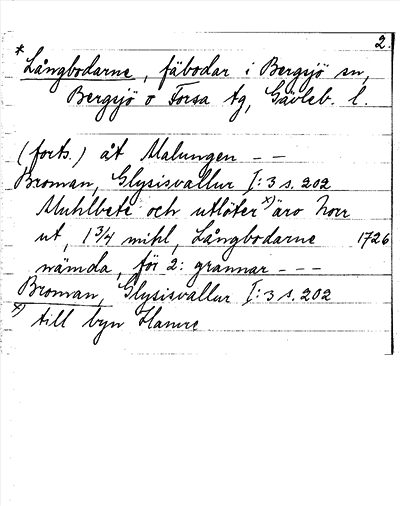 2.
* Långbodarne, fäbodar i Bergsjö sn,
Bergsjö o Forsa tg, Gävleb. l.
(forts.) åt Malungen - -
Broman, Glysisvallur I:3 s. 202
Muhlbete och utlöter x) äro norr
ut, 1 3/4 mihl, Långbodarne 1726
nämda, för 2: grannar - - -
Broman, Glysisvallur I:3 s. 202
x) till byn Hamre